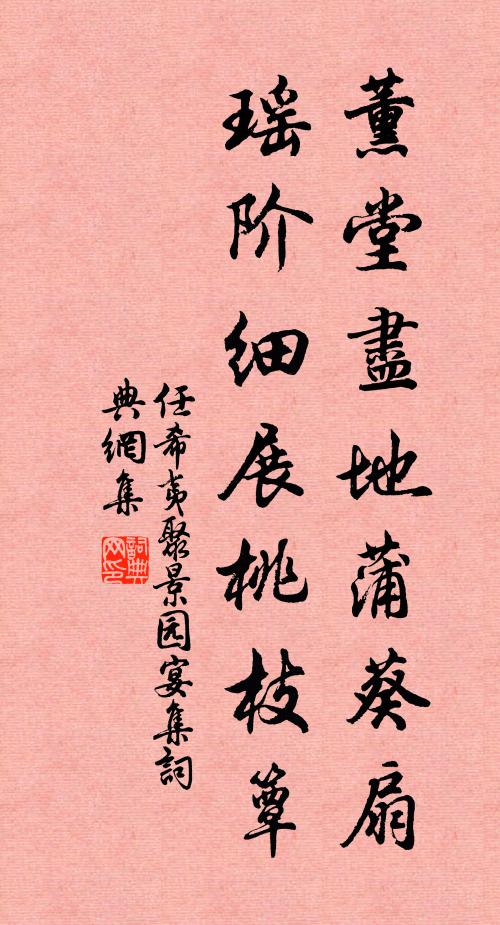 薰堂盡地蒲葵扇
瑶阶细展桃枝簟
任希夷聚景园宴集詞
典網集
詞典网印